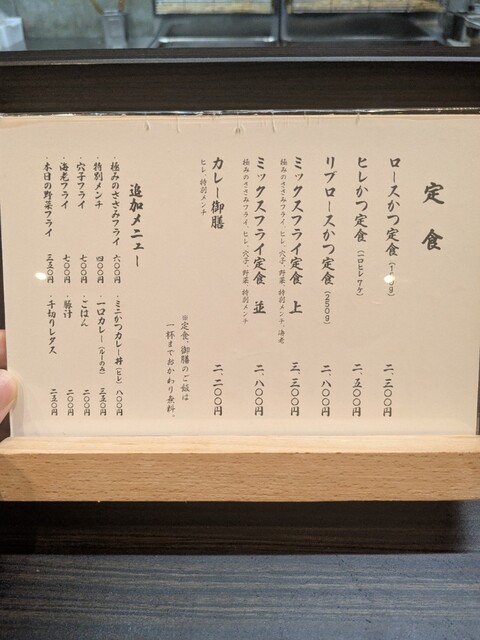 定食
ロースかつ定食 二、三〇〇円
ヒレかつ定食 (一口ヒレ7ケ) 二、五〇〇円
リブロースかつ定食 (250g) 二、八〇〇円
ミックスフライ定食 上 三、三〇〇円
極みのささみフライ、ヒレ、穴子、野菜、特別メンチ、海老
ミックスフライ定食 並 二、八〇〇円
極みのささみフライ、ヒレ、穴子、野菜、特別メンチ
カレー御膳 二、二〇〇円
ヒレ、特別メンチ
※定食、御膳のご飯は
一杯までおかわり無料。
追加メニュー
・極みのささみフライ 六〇〇円
・特別メンチ 四〇〇円
・穴子フライ 七〇〇円
・海老フライ 七〇〇円
・本日の野菜フライ 三五〇円
・ミニかつカレー丼(ヒレ) 八〇〇円
・一口カレー(ルーのみ) 三五〇円
・ごはん 二〇〇円
・豚汁 二〇〇円
・千切りレタス 二五〇円